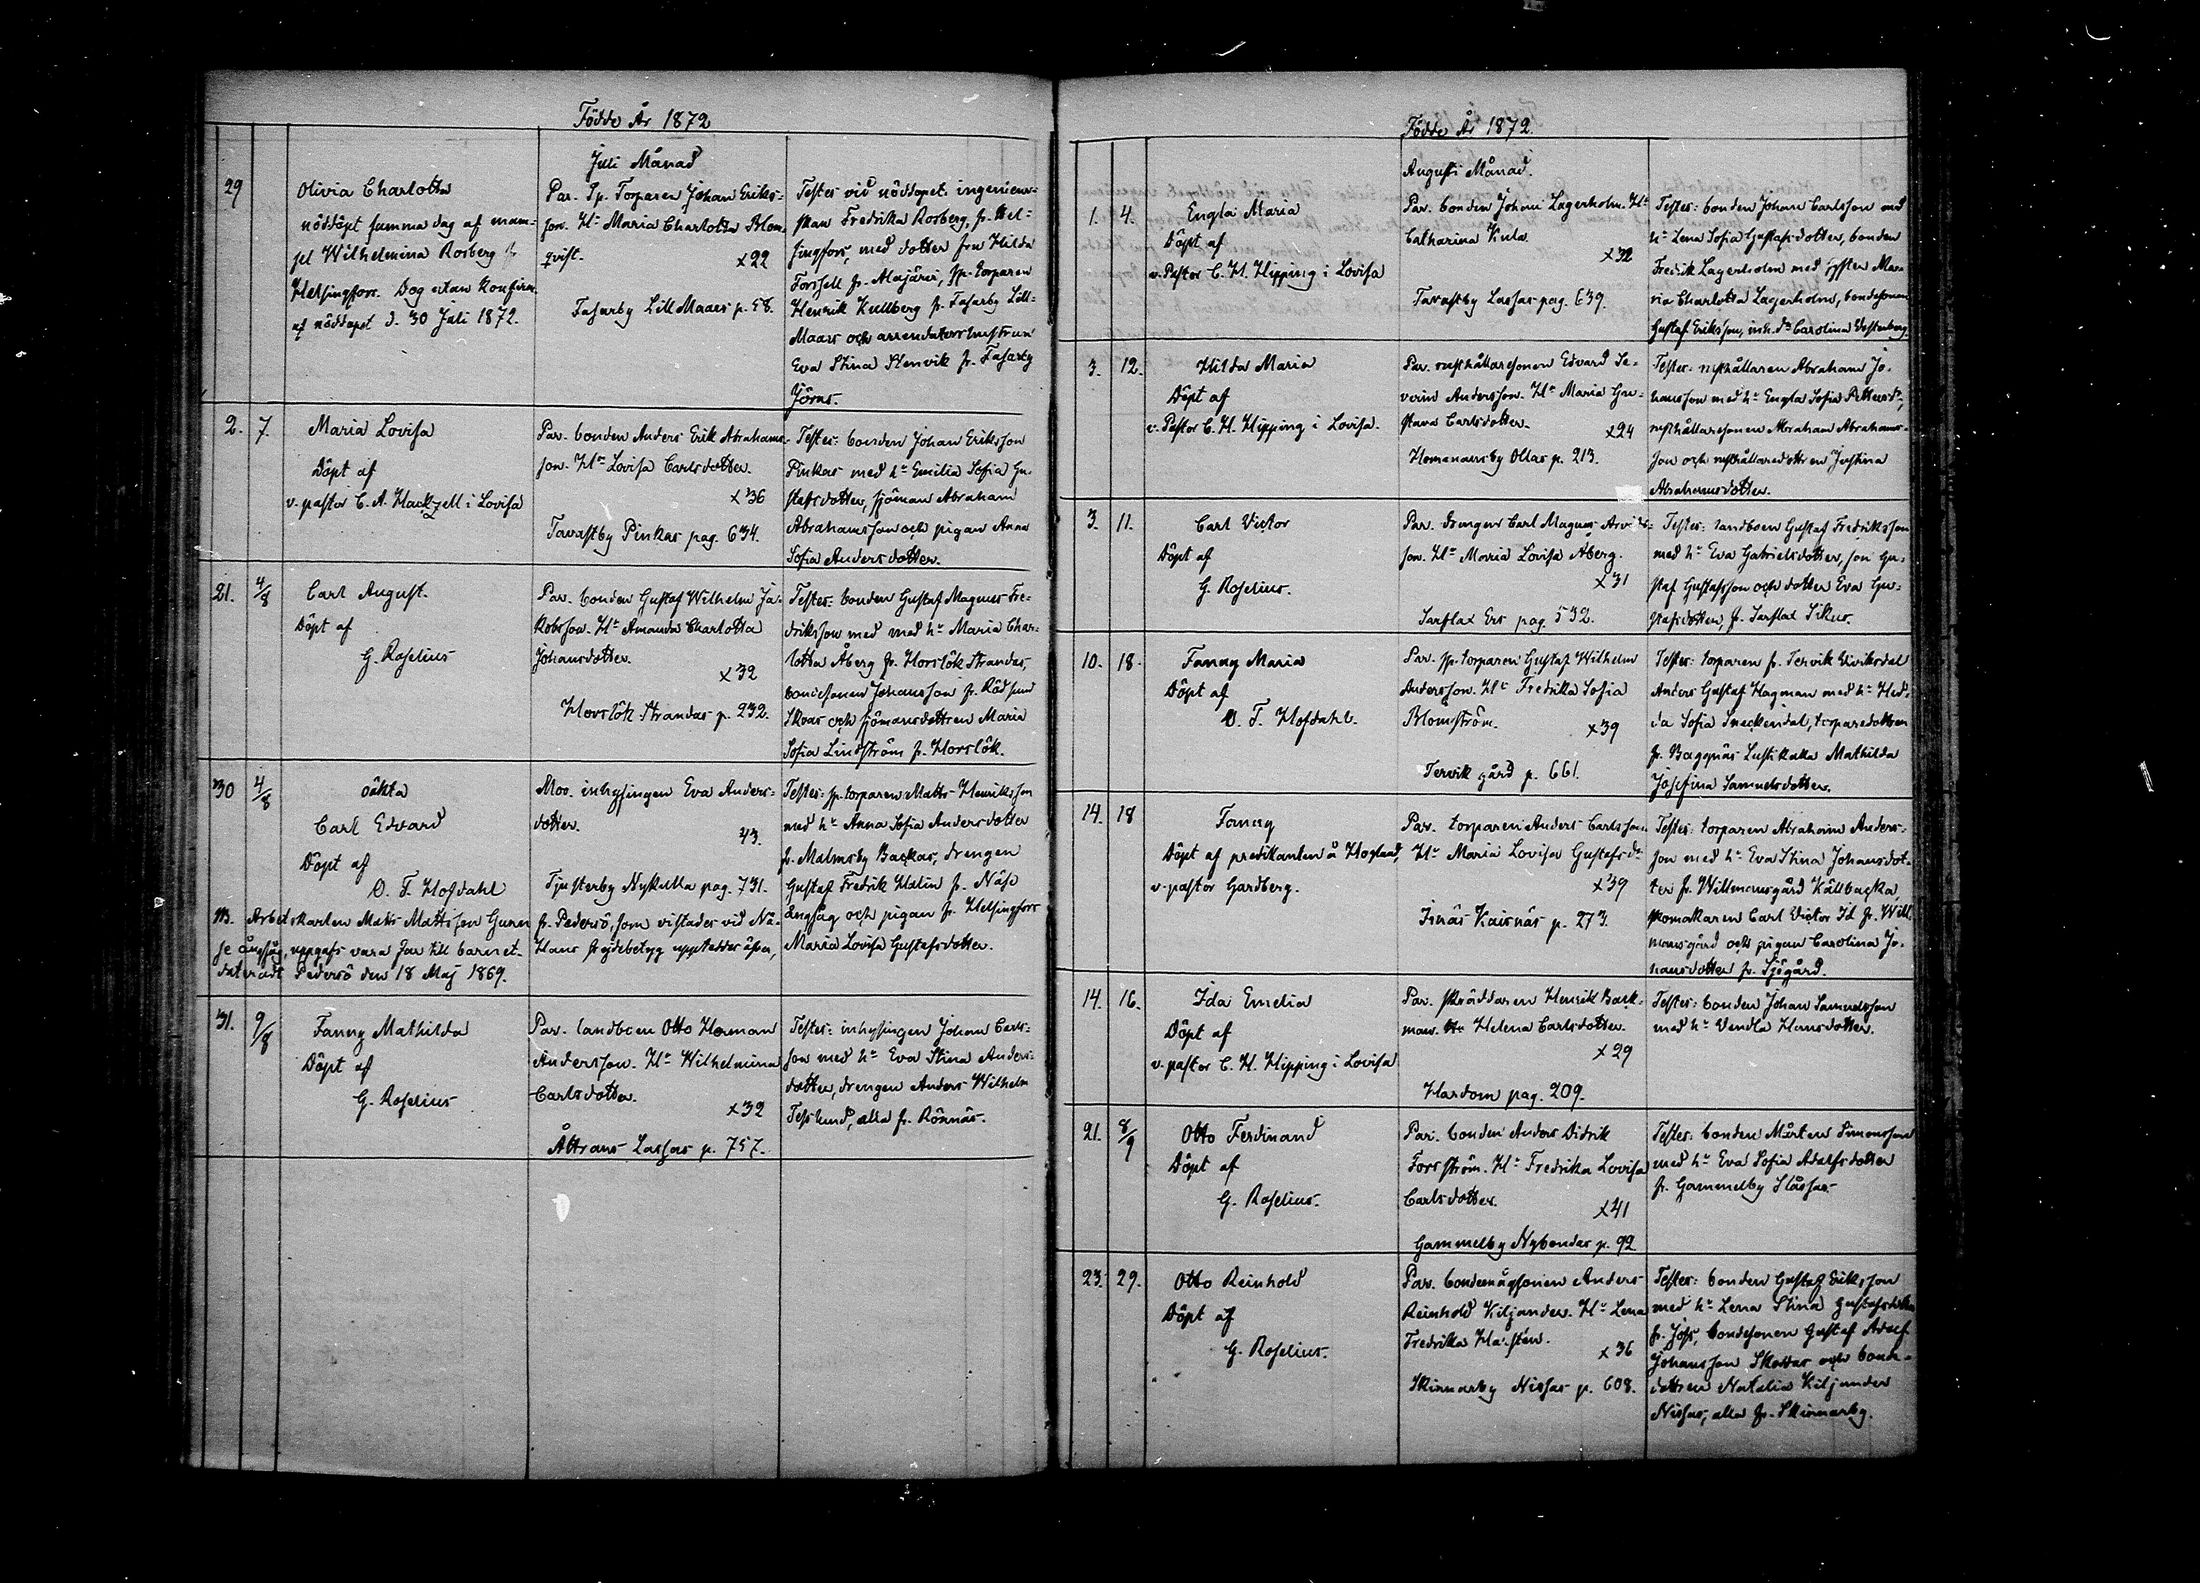 Födde År 1872
Juli Månad
29
Olivia Charlotta
nöddöpt samma dag af mam-
sel Wilhelmina Rosberg fr
Helsingfors. Dog utan konfirm.
af nöddopet d. 30 Juli 1872.
Par. Sp. Torparen Johan Eriks-
son. Hu Maria Charlotta Blom
qvist.
x22
Fasarby Lill Maars p. 58.
Testes vid nöddopet: ingenieur-
skan Fredrika Rosberg, fr. Hel-
singfors, med dotter fru Hilda
Forsell fr. sp. torparen
Henrik Kullberg fr. Fasarby Lill-
Maars och arrendatorshustrun
Eva Stina Stenvik fr. Fasarby
Jörns.
2. 7.
Maria Lovisa
Döpt af
v. pastor C. A. Hackzell i Lovisa
Par. bonden Anders Erik Abrahams-
son. Hu Lovisa Carlsdotter.
x36
Tavastby Pinkas pag. 634.
Testes: bonden Johan Eriksson
Pinkas med hu Emilia Sofia Gu-
stafsdotter, sjöman Abraham
Abrahamsson och pigan Anna
Sofia Andersdotter.
21. 4/8
Carl August.
Döpt af
G. Roselius
Par. bonden Gustaf Wilhelm Ja-
kobsson. Hu Amanda Charlotta
Johansdotter.
x32
Horslök Strandas p. 232.
Testes: bonden Gustaf Magnus Fre-
driksson med med hu Maria Char-
lotta Åberg fr. Horslök Strandas,
bondesonen Johansson fr. Rödsund
Skoas och sjömansdottren Maria
Sofia Lindström fr. Horslök.
30 4/8
oäkta
Carl Edvard
Döpt af
O. F. Hofdahl
Moo. inhysingen Eva Anders-
dotter.
43.
Tjusterby Nykulla pag. 731.
Testes: sp. torparen Matts Henriksson
med hu Anna Sofia Andersdotter
fr. Malmsby Backas, drengen
Gustaf Fredrik Malin fr. Näse
ångsåg och pigan fr. Helsingfors
Maria Lovisa Gustafsdotter.
NB. Arbetskarlen Matts Mattsson Gunn fr. Pedersö, som vistades vid Nä-
se ångsåg, uppgafs vara far till barnet. Hans frejdebetyg upptedde äfven,
dateradt Pedersö den 18 Maj 1869.
31. 9/8
Fanny Mathilda
Döpt af
G. Roselius
Par. landboen Otto Herman
Andersson. Hu Wilhelmina
Carlsdotter.
x32
Åttrans Lassas p. 757.
Testes: inhysingen Johan Carls-
son med hu Eva Stina Anders-
dotter, drengen Anders Wilhelm
Teslund, alla fr. Rönnäs.
Födde År 1872.
Augusti Månad.
1. 4.
Engla Maria
Döpt af
v. Pastor C. H. Hipping i Lovisa
Par. bonden Johan Lagerholm. Hu
Catharina Kula
x32
Tavastby Lassas pag. 639.
Testes: bonden Johan Carlsson med
hu Lena Sofia Gustafsdotter, bonden
Fredrik Lagerholm med syster Ma-
ria Charlotta Lagerholm, bondesonen
Gustaf Eriksson, inh. dr Carolina Westerberg.
3. 12.
Hilda Maria
Döpt af
v. Pastor C. H. Hipping i Lovisa.
Par. rusthållaresonen Edvard Se-
verin Andersson. Hu Maria Gu-
stava Carlsdotter.
x24
Homanasby Ollas p. 213.
Testes: rusthållaren Abraham Jo-
hansson med hu Engla Sofia Pettersdr,
rusthållaresonen Abraham Abrahams-
son och rusthållaredottren Justina
Abrahamsdotter.
3. 11.
Carl Victor
Döpt af
G. Roselius.
Par. drengen Carl Magnus Arvids-
son. Hu Maria Lovisa Åberg.
x31
Sarflax Ers pag. 532.
Testes: landboen Gustaf Fredriksson
med hu Eva Gabrielsdotter, son Gu-
staf Gustafsson och dotter Eva Gu-
stafsdotter, fr. Sarflax Sikus.
10. 18.
Fanny Maria
Döpt af
O. F. Hofdahl.
Par. sp. torparen Gustaf Wilhelm
Andersson. Hu Fredrika Sofia
Blomström.
x39
Tervik gård p. 661.
Testes: torparen fr. Tervik Ulriksdal
Anders Gustaf Hagman med hu Hed-
da Sofia Sneckendal, torparedottren
fr. Baggnäs Lustikulla Mathilda
Josefina Samuelsdotter.
14. 18
Fanny
Döpt af predikanten å Hogland,
v. pastor Gardberg.
Par. torparen Anders Carlsson.
Hu Maria Lovisa Gustafsdr
x39
Isnäs Kairnäs p. 273.
Testes: torparen Abraham Anders-
son med hu Eva Stina Johansdot-
ter fr. Willmansgård Källbacka,
skomakaren Carl Victor Id fr. Will-
mansgård och pigan Carolina Jo-
hansdotter fr. Sjögård.
14. 16.
Ida Emelia
Döpt af
v. pastor C. H. Hipping i Lovisa
Par. skräddaren Henrik Back-
man. Hu Helena Carlsdotter.
x29
Hardom pag. 209.
Testes: bonden Johan Samuelsson
med hu Wendla Hansdotter.
21. 8/9
Otto Ferdinand
Döpt af
G. Roselius.
Par. bonden Anders Didrik
Forsström. Hu Fredrika Lovisa
Carlsdotter.
x41
Gammelby Nybondas p. 92.
Testes: bonden Mårten Simonsson
med hu Eva Sofia Adolfsdotter
fr. Gammelby Slåssas.
23. 29.
Otto Reinhold
Döpt af
G. Roselius.
Par. bondemågsonen Anders
Reinhold Kiljander. Hu Lena
Fredrika Hagstén.
x36
Skinnarby Nissas p. 608.
Testes: bonden Gustaf Eriksson
med hu Lena Stina Gustafsdotter
fr. Joss, bondesonen Gustaf Adolf
Johansson Skottas och bonde-
dottren Natalia Kiljander
Nissas, alla fr. Skinnarby.